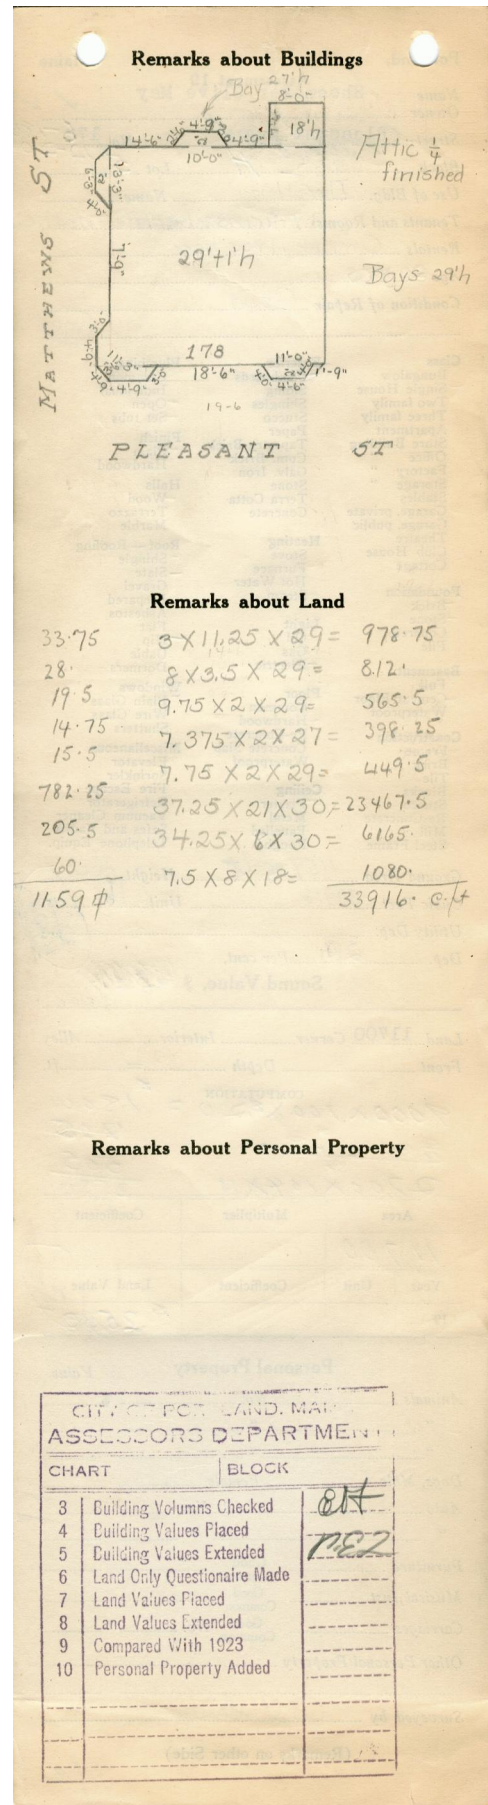 Remarks about Buildings
Bay 27'h
8'-0"
14'-6" 4'-9" 4'-9" 18'h
10'-0"
Attic 1/4
finished
MATTHEWS ST
13'-3"
29'+1'h
Bays 29'h
178
11'-0"
4'-9" 18'-6" 4'-6" 1'-9"
19-6
PLEASANT ST
Remarks about Land
33.75 3 X 11.25 X 29 = 978.75
28. 8 X 3.5 X 29 = 812.
19.5 9.75 X 2 X 29 = 565.5
14.75 7.375 X 2 X 27 = 398.25
15.5 7.75 X 2 X 29 = 449.5
782.25 37.25 X 21 X 30 = 23467.5
205.5 34.25 X 6 X 30 = 6165.
60. 7.5 X 8 X 18 = 1080.
1159 ф 33916. c.ft
Remarks about Personal Property
CITY OF PORTLAND, MAINE
ASSESSORS DEPARTMENT
CHART BLOCK
3 Building Volumns Checked
4 Building Values Placed
5 Building Values Extended
6 Land Only Questionaire Made
7 Land Values Placed
8 Land Values Extended
9 Compared With 1923
10 Personal Property Added